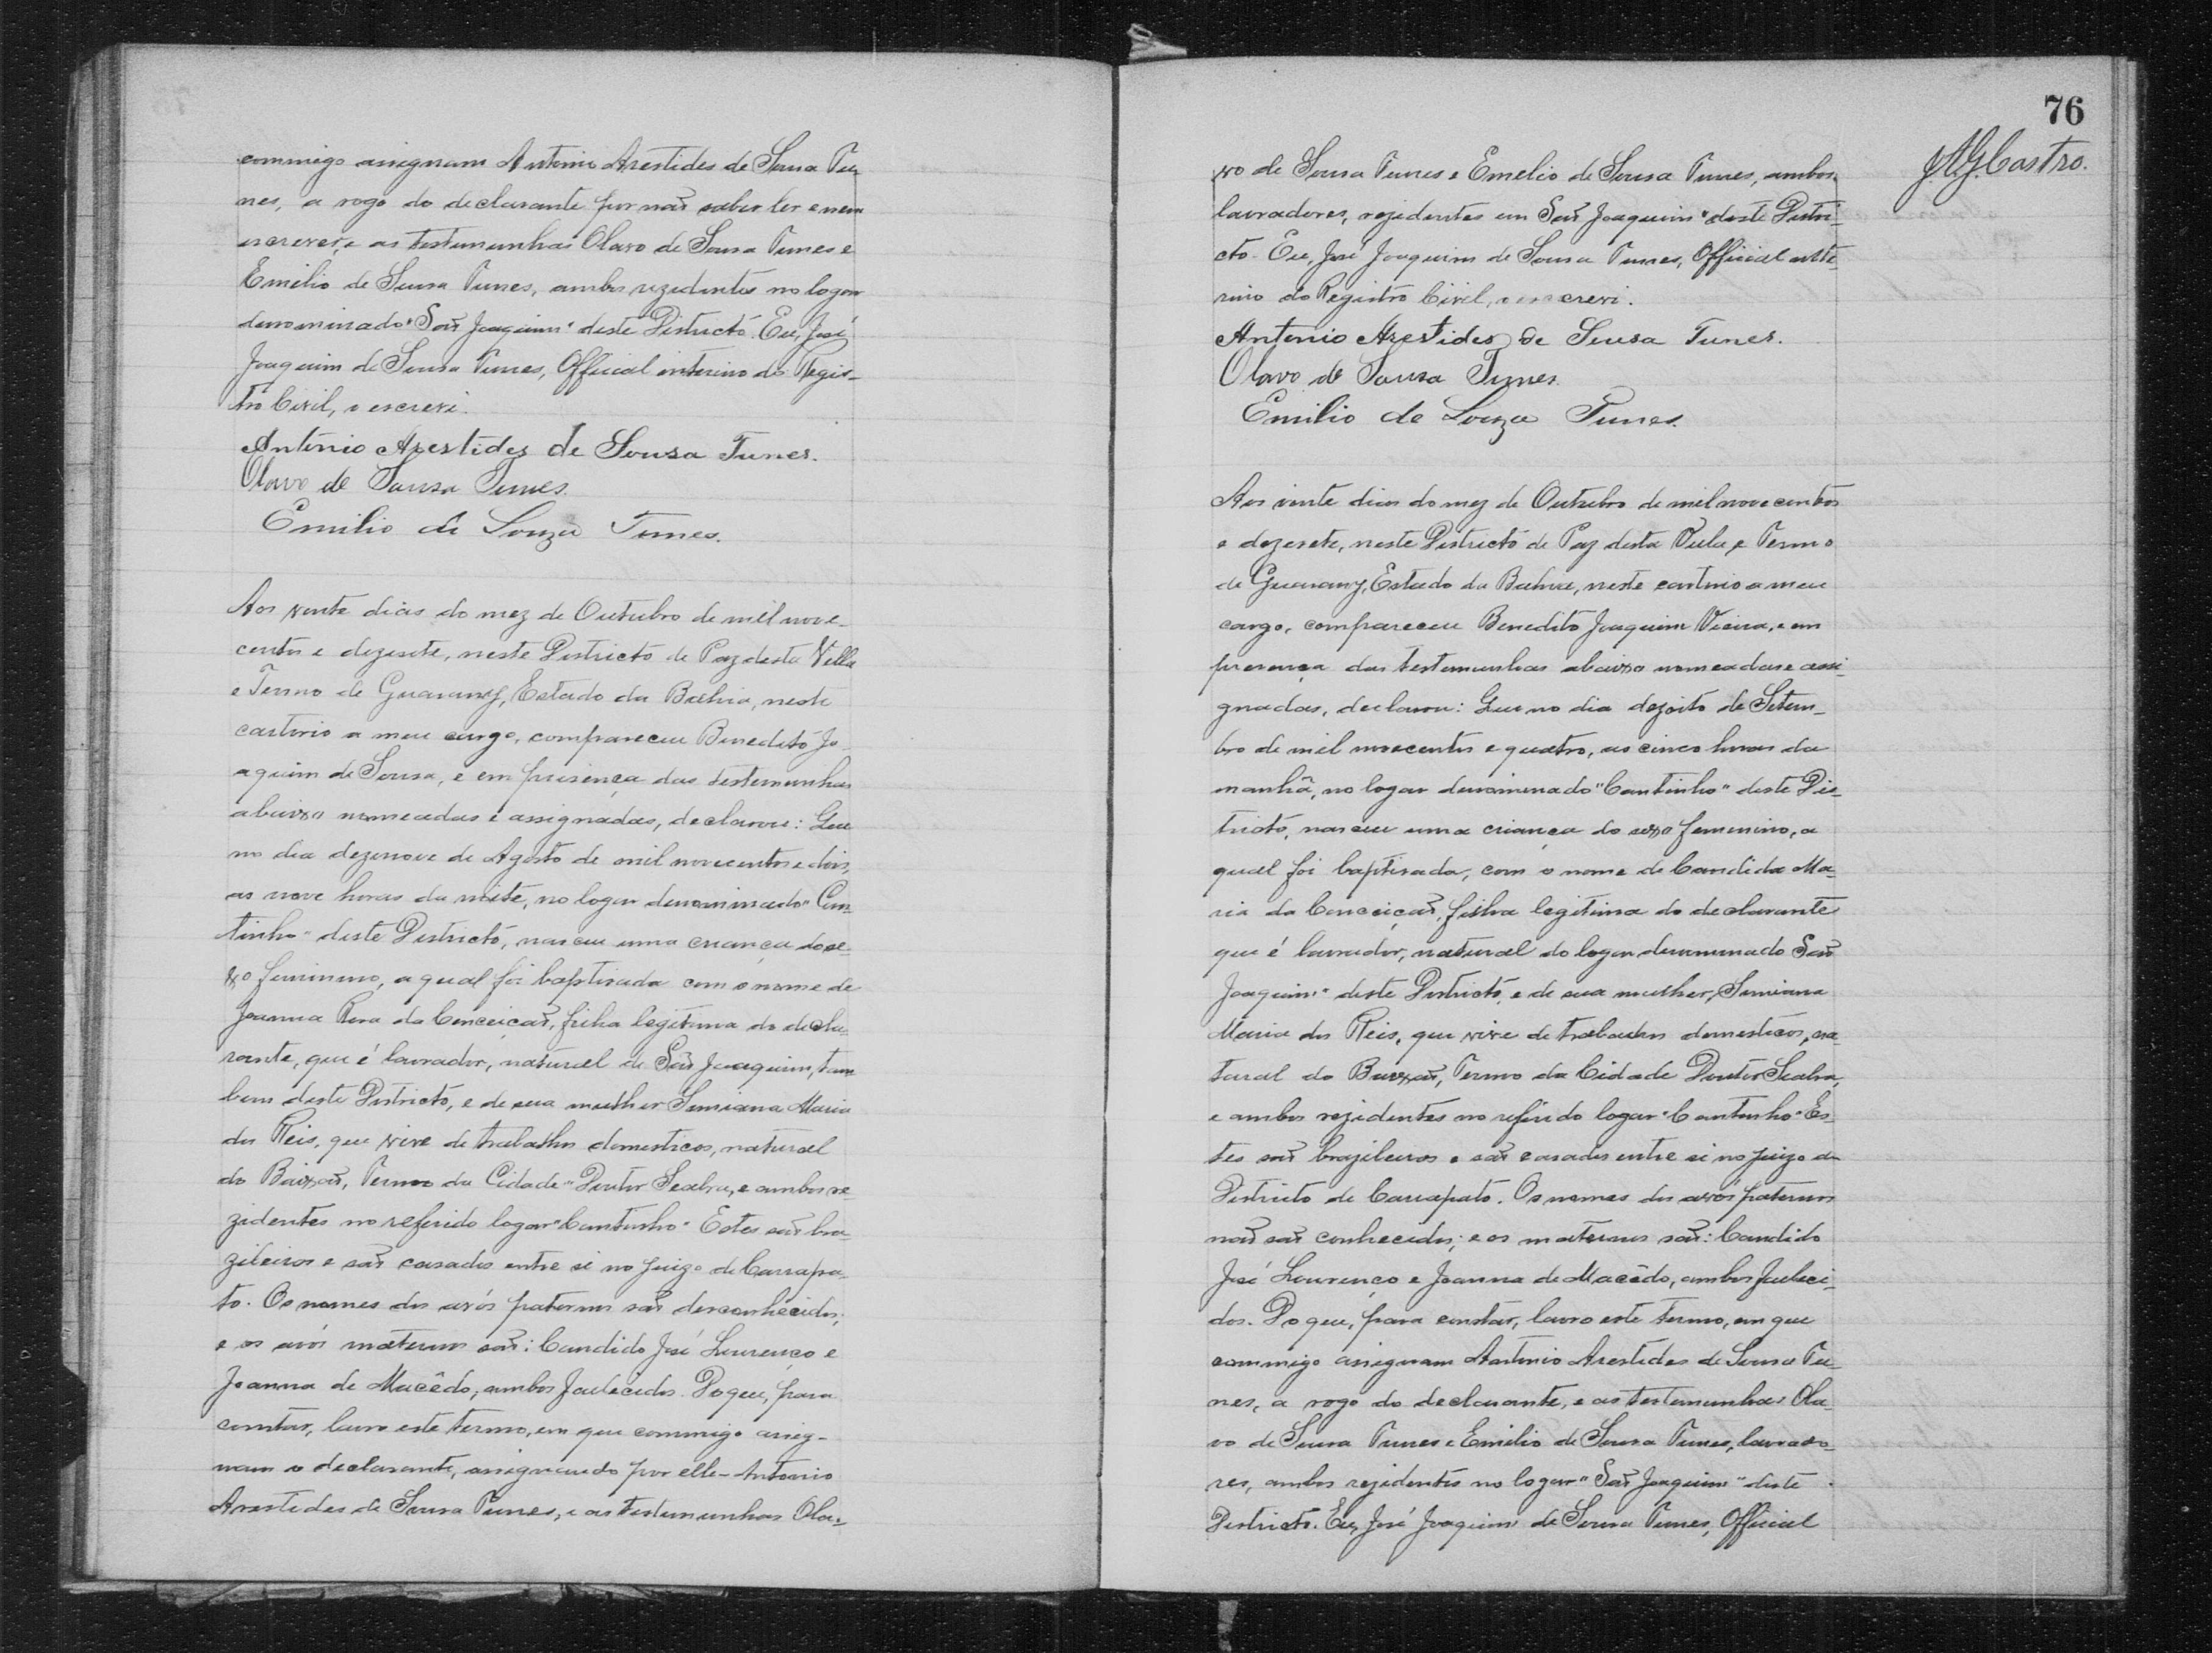 commigo assignam Antonio Arestides de Sousa Tu-
nes, a rogo do declarante por não saber ler e nem
escrever, e as testemunhas Olavo de Sousa Tunes e
Emilio de Sousa Tunes, ambos rezidentes no logar
denominado "São Joaquim" deste Districto. Eu, José
Joaquim de Sousa Tunes, Official interino do Regis-
tro Civil, o escrevi.
Antonio Arestides de Sousa Tunes.
Olavo de Sousa Tunes.
Emilio de Souza Tunes.
Aos vinte dias do mez de Outubro de mil nove-
centos e dezesete, neste Districto de Paz desta Villa
e Termo de Guarany, Estado da Bahia, neste
cartorio a meu cargo, compareceu Benedito Jo-
aquim de Sousa, e em presença das testemunhas
abaixo nomeadas e assignadas, declarou: Que
no dia dezenove de Agosto de mil novecentos e dois,
as nove horas da noite, no logar denominado "Can-
tinho" deste Districto, nasceu uma criança do se-
xo feminino, a qual foi baptisada com o nome de
Joanna Rosa da Conceição, filha legitima do decla-
rante, que é lavrador, natural de São Joaquim, tam
bem deste Districto, e de sua mulher Simiana Maria
dos Reis, que vive de trabalhos domesticos, natural
do Baixão, Termo da Cidade "Doutor Seabra, e ambos re-
zidentes no referido logar "Cantinho" Estes são bra-
zileiros e são casados entre si no juizo de Carrapa-
to. Os nomes dos avós paternos são desconhecidos;
e os avós maternos são: Candido José Lourenço e
Joanna de Macêdo, ambos falecidos. Do que, para
constar, lavro este termo, em que commigo assig-
nam o declarante, assignando por elle - Antonio
Arestides de Sousa Tunes, e as testemunhas Ola-
76
J.A.G. Castro.
vo de Sousa Tunes e Emelio de Sousa Tunes, ambos
lavradores, rezidentes em São Joaquim" deste Distri-
cto. Eu, José Joaquim de Sousa Tunes, Official inte-
rino do Registro Civil, o escrevi.
Antonio Arestides de Sousa Tunes.
Olavo de Sousa Tunes.
Emilio de Souza Tunes.
Aos vinte dias do mez de Outubro de mil novecentos
e dezesete, neste Districto de Paz desta Villa e Termo
de Guarany, Estado da Bahia, neste cartorio a meu
cargo, compareceu Benedito Joaquim Vieira, e em
presença das testemunhas abaixo nomeadas e assi-
gnadas, declarou: Que no dia dezoito de Setem-
bro de mil novecentos e quatro, as cinco horas da
manhã, no logar denominado "Cantinho" deste Dis-
tricto, nasceu uma criança do sexo femenino, a
qual foi baptisada, com o nome de Candida Ma-
ria da Conceição, filha legitima do declarante
que é lavrador, natural do logar denominado São
Joaquim" deste Districto, e de sua mulher, Simiana
Maria dos Reis, que vive de trabalhos domesticos, na-
tural do Baixão, Termo da Cidade Doutor Seabra,
e ambos rezidentes no referido logar "Cantinho" Es-
tes são brazileiros e são casados entre si no juizo do
Districto de Carrapato. Os nomes dos avós paternos
não são conhecidos; e os maternos são: Candido
José Lourenço e Joanna de Macêdo, ambos faleci-
dos. Do que, para constar, lavro este termo, em que
commigo assignam Antonio Arestides de Sousa Tu-
nes, a rogo do declarante, e as testemunhas Ola-
vo de Sousa Tunes e Emilio de Sousa Tunes, lavrado-
res, ambos rezidentes no logar "São Joaquim" deste
Districto. Eu, José Joaquim de Sousa Tunes, Official